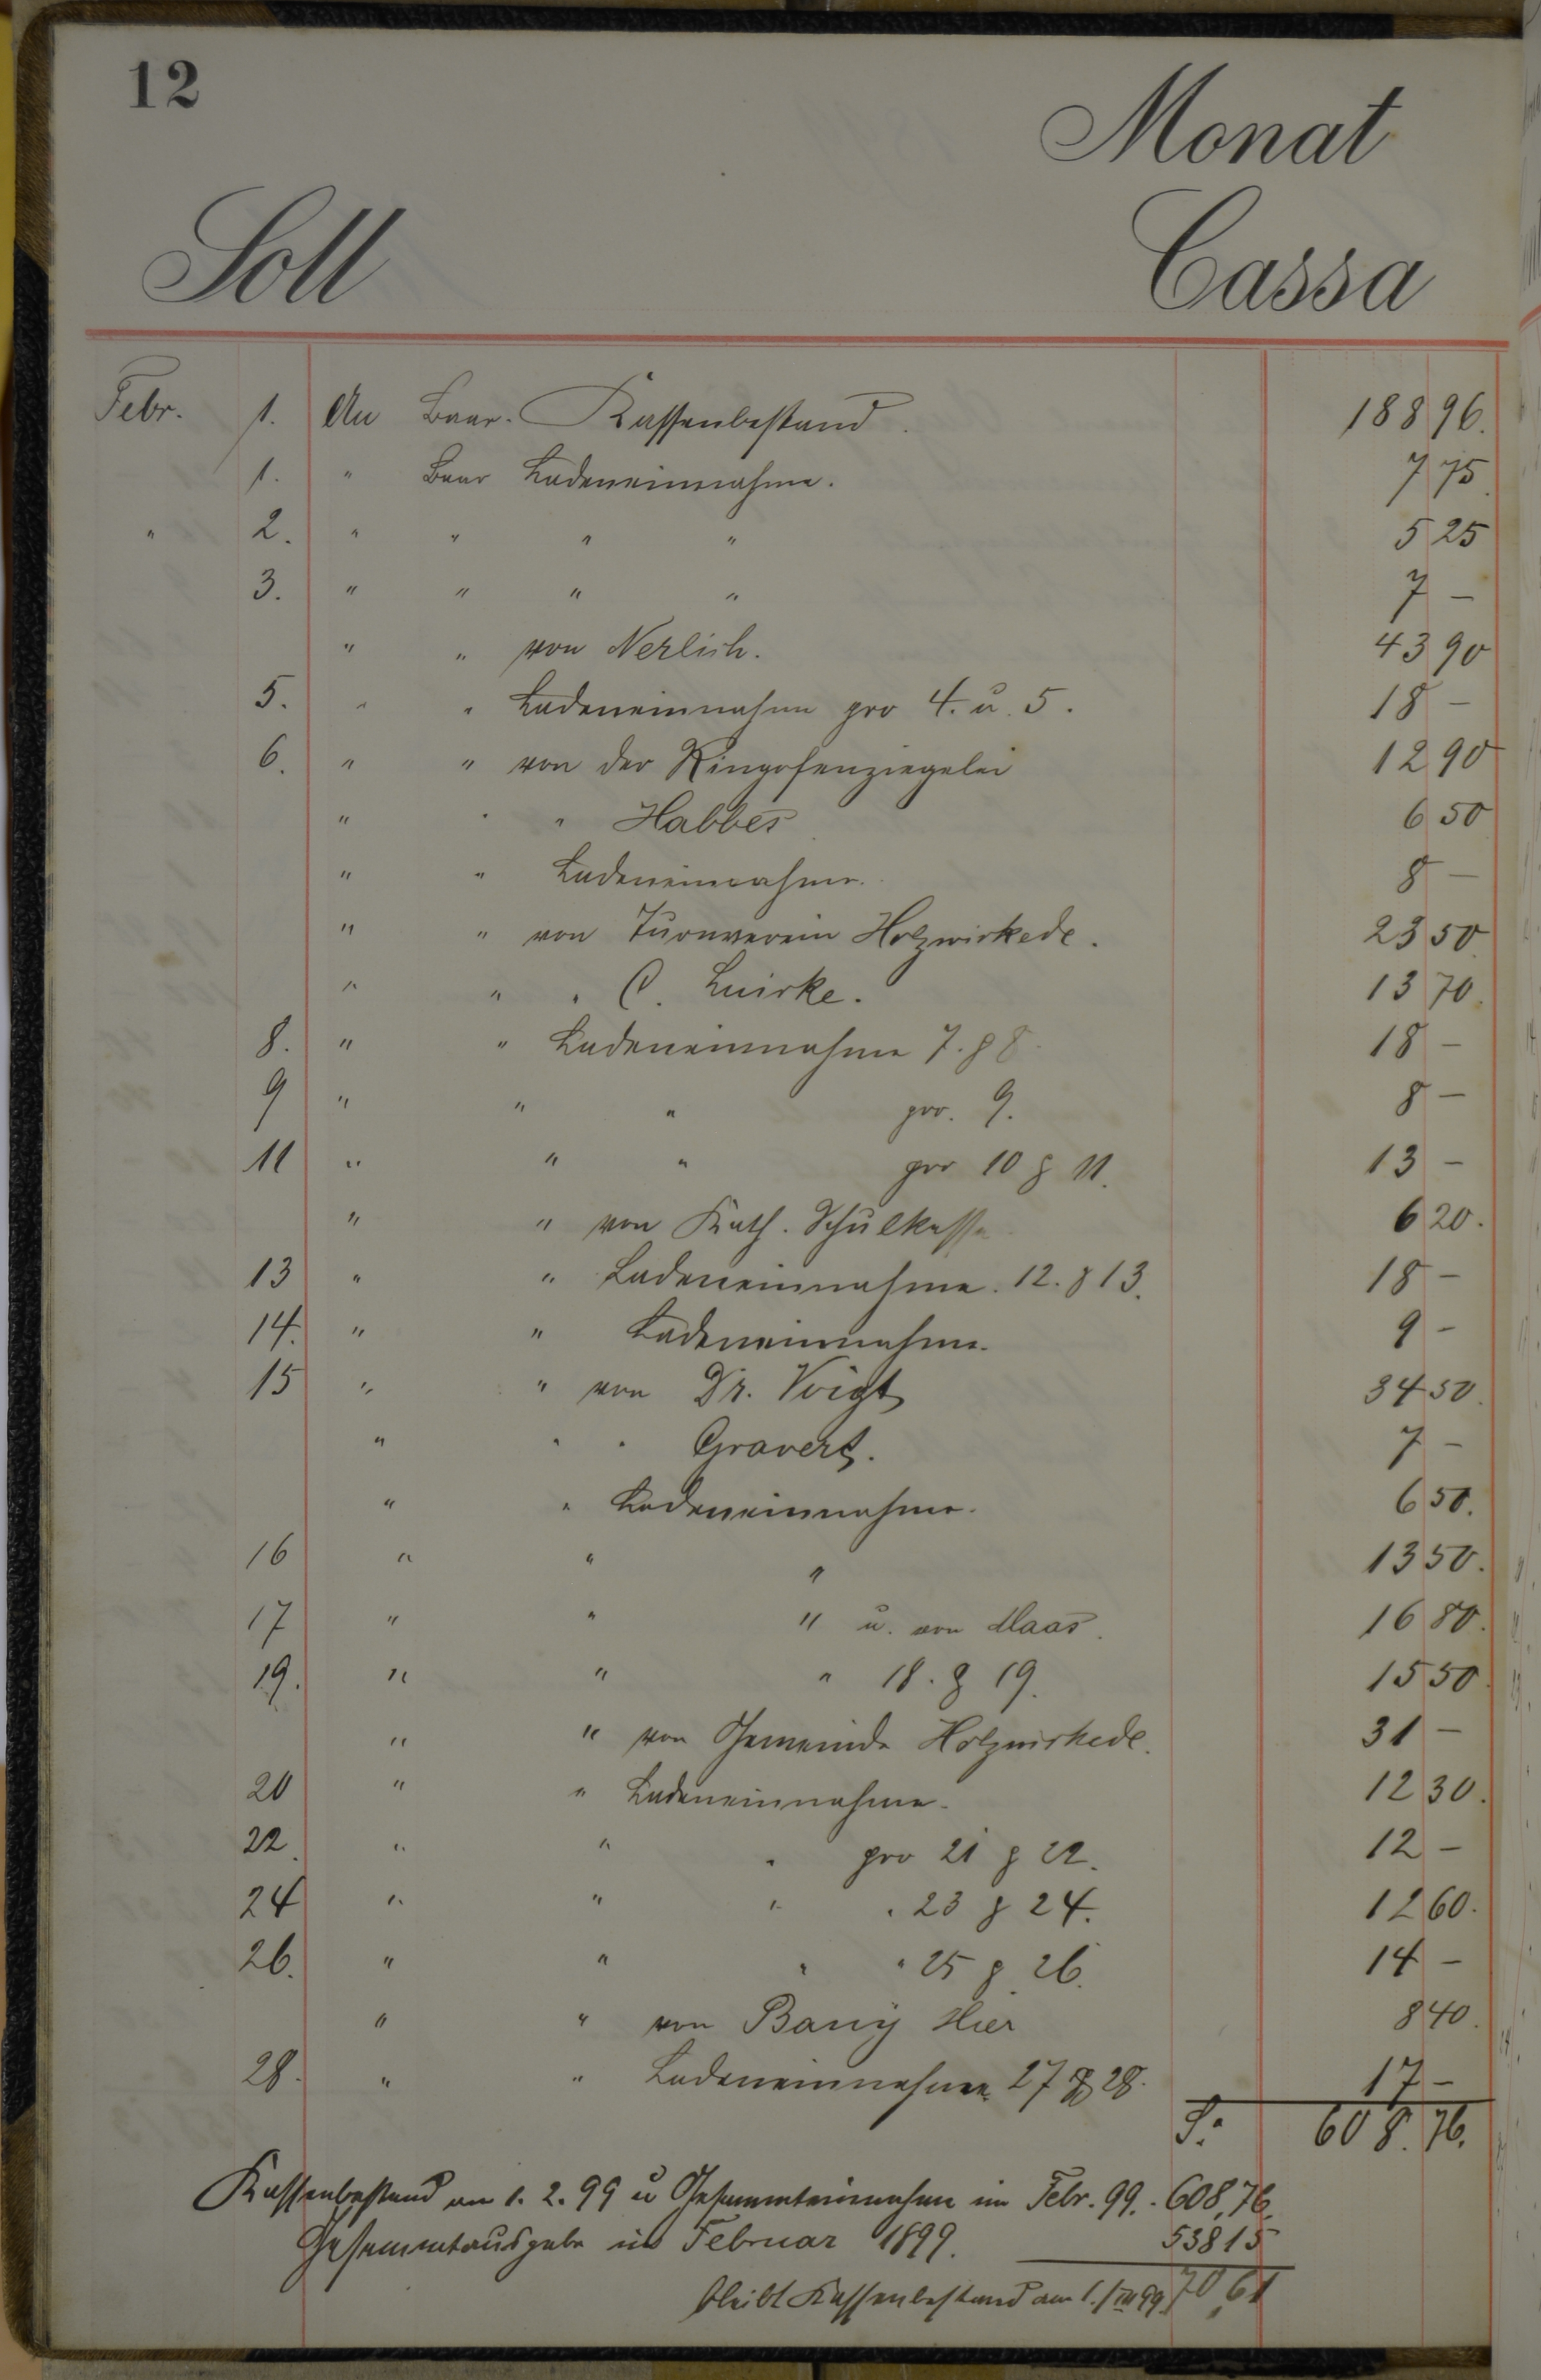 12
Monat
Soll Cassa
Febr. 1. An Baar. Kassenbestand. 188 96.
1. " Baar Ladeneinnahme. 7 75.
" 2. " " " " 5 25
3. " " " " 7 –
" " von Nerlich. 43 90
5. " " Ladeneinnahme pro 4. u. 5. 18 –
6. " " von der Ringofenziegelei 12 90
" " " Habbes 6 50
" " Ladeneinnahme. 8 –
" " von Turnverein Holzwickede. 23 50.
" " " C. Luirke. 13 70.
8. " " Ladeneinnahme 7. & 8. 18 –
9 " " " pro. 9. 8 –
11 " " " pro 10 & 11. 13 –
" " von Kath. Schulkasse 6 20.
13 " " Ladeneinnahme. 12. & 13. 18 –
14. " " Ladeneinnahme. 9 –
15 " " von Dr. Voigt 34 50.
" " " Gravert. 7 –
" " Ladeneinnahme. 6 50.
16 " " " 13 50.
17 " " " u. von Maas. 16 80.
19. " " " 18. & 19. 15 50.
" " von Gemeinde Holzwickede. 31 –
20 " " Ladeneinnahme. 12 30.
22. " " " pro 21 & 22. 12 –
24 " " " " 23 & 24. 12 60.
26. " " " " 25 & 26. 14 –
" " von Barry Hier 8 40.
28. " " Ladeneinnahme 27 & 28. 17 –
S: 608. 76.
Kassenbestand am 1. 2. 99 u Gesammteinnahme im Febr. 99. 608,76.
Gesammtausgabe im Februar 1899. 538 15
bleibt Kassenbestand am 1./III 99. 70,61